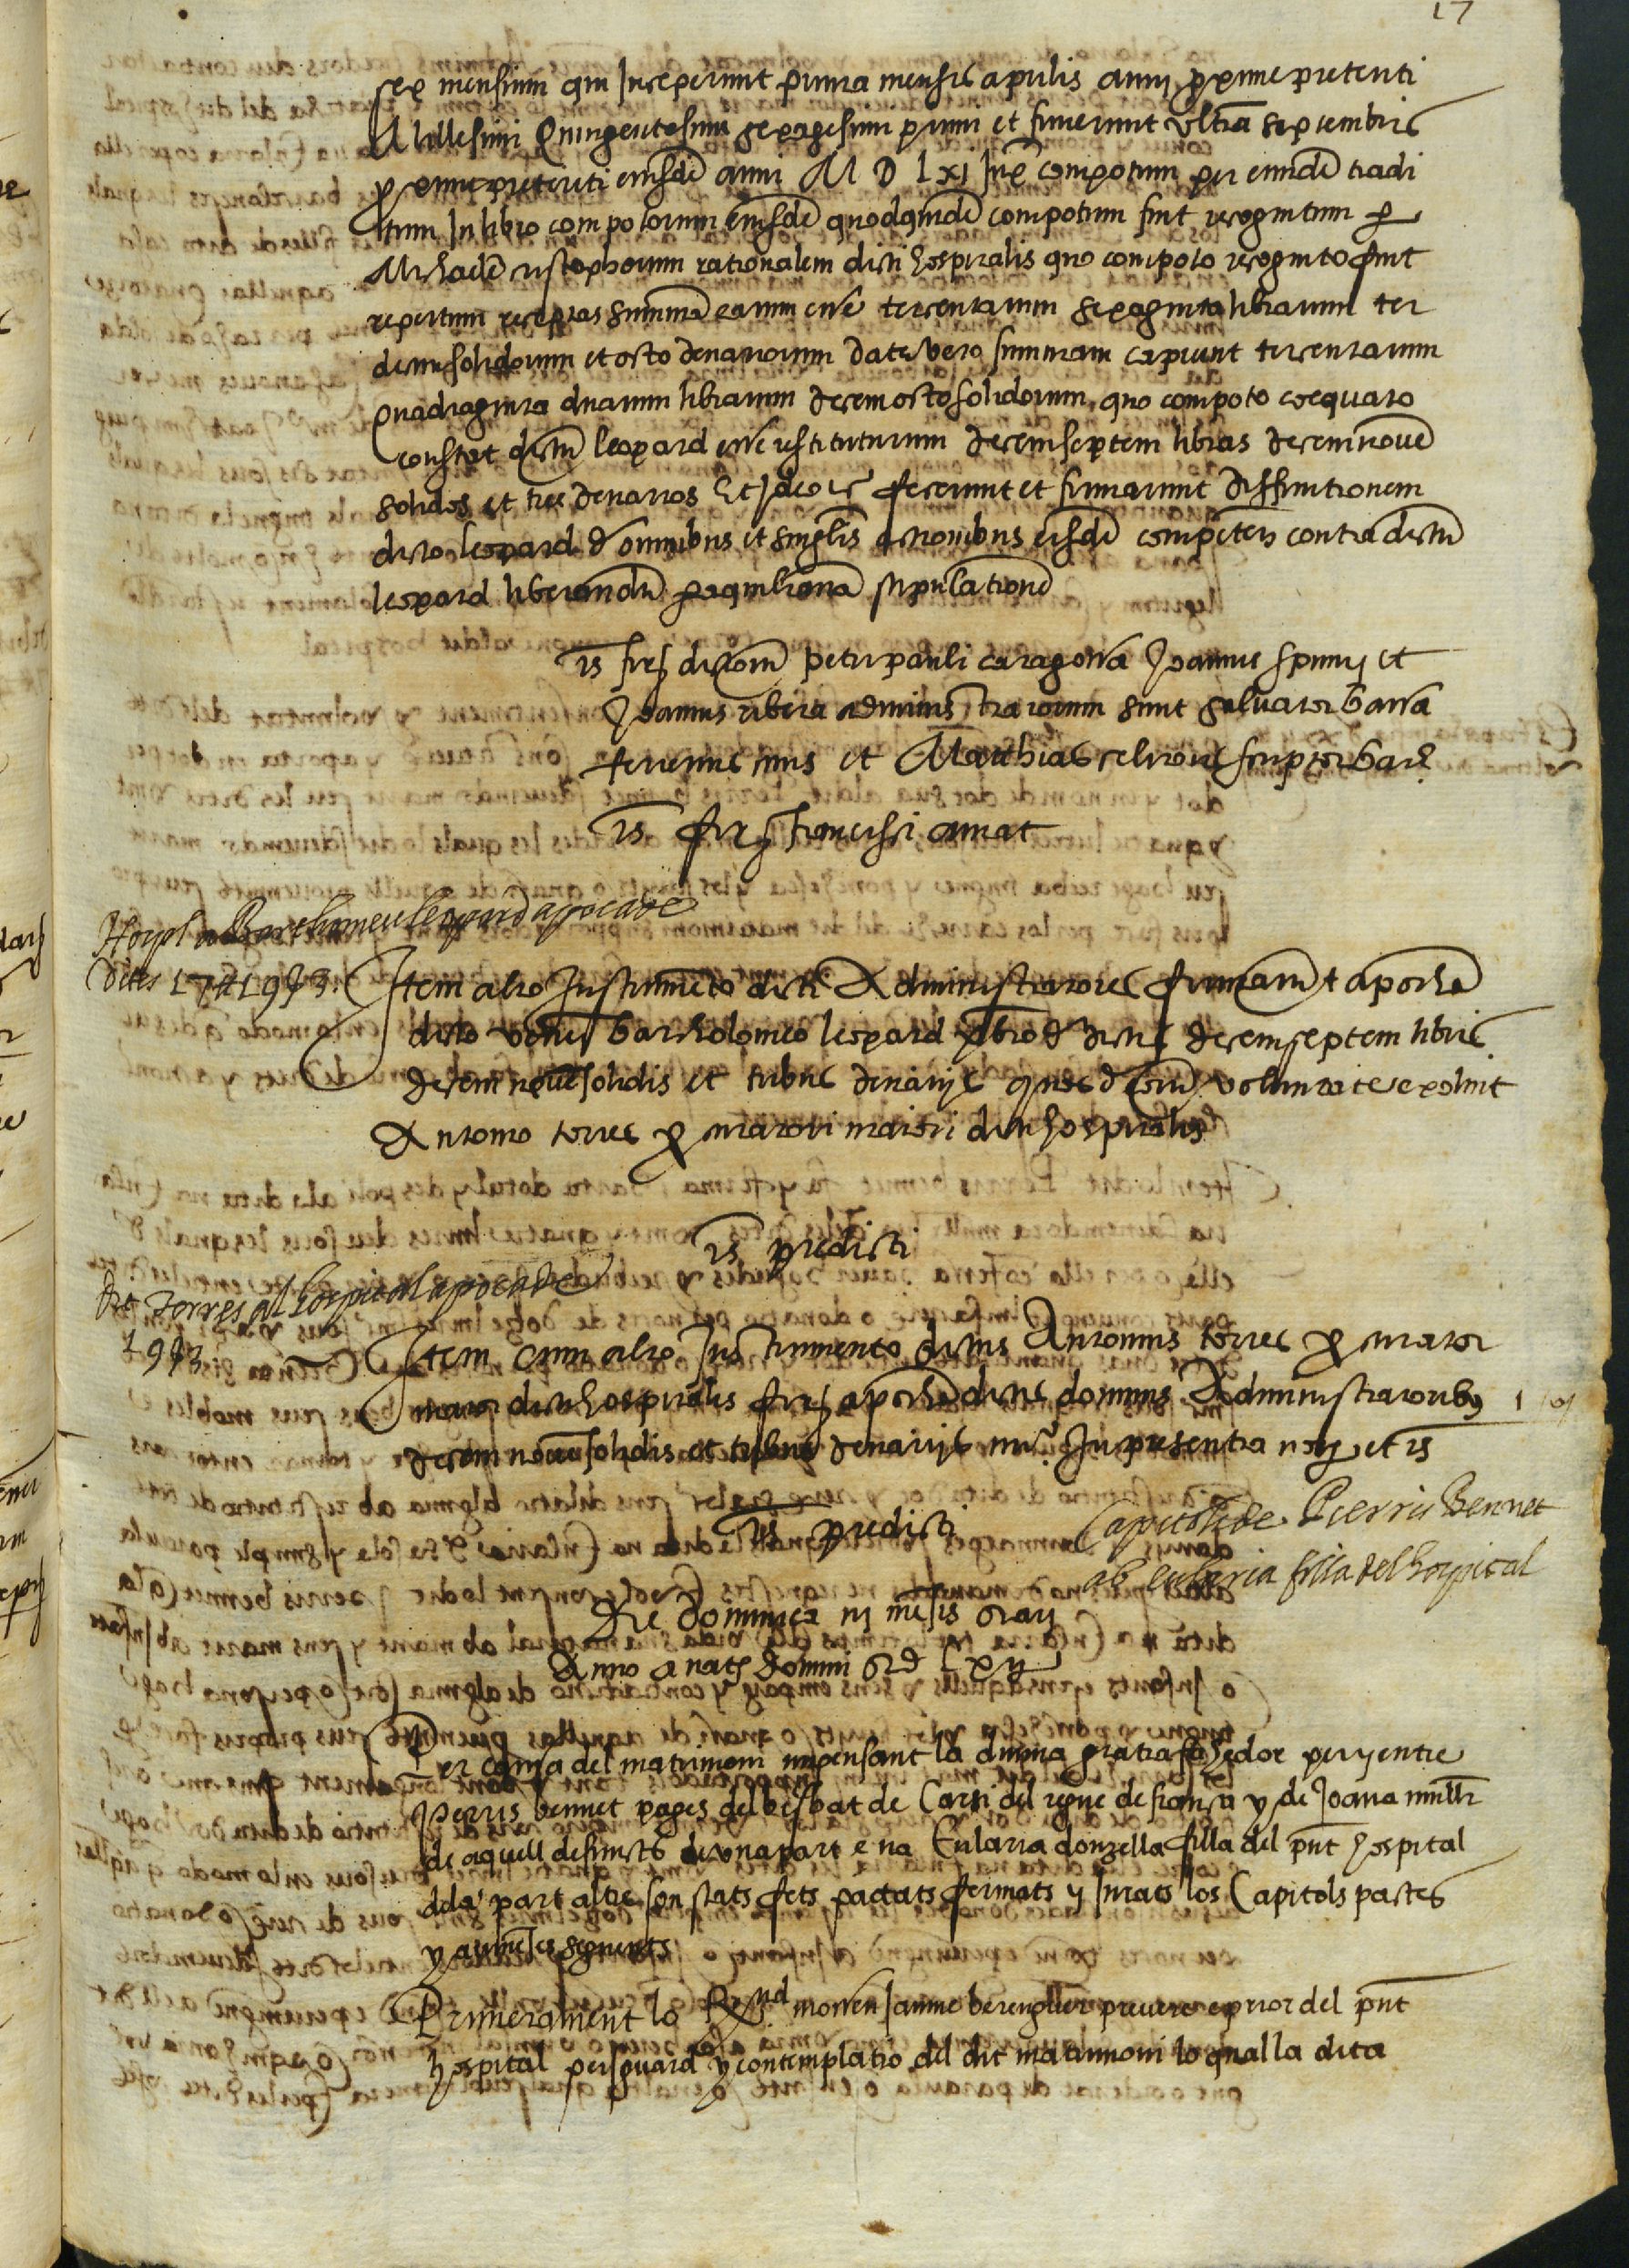 17
sex mensium qui Inceperunt prima mensis aprilis anni proxime pretenti
Millesimi Quingentesimi sexagesimi primi et finierunt ultima septembris
proxime preteriti eiusde anni M D Lxj computum per eunde tradi
tum In libro compotorum eiusde quodquide compotum fuit recognitum per
Michaele cristophorum rationalem dicti hospitalis quo compoto recognito fuit
repertum receptas summa earum esse tercentarum sexaginta librarum ter
decim solidorum et octo denariorum Date vero summam capiunt tercentarum
Quadraginta duarum librarum decemocto solidorum, quo compoto coequato
constat dictu leopard esse restituturum decemseptem libras decemnove
solidos et tres denarios Et Ideo fecerunt et firmarunt diffinitionem
dicto leopard de omnibus et singulis actionibus eisde competen contra dictu
leopard liberandu per aquiliana stipulatione
ts firme dictoru petri pauli caragossa Joannis spuny et
Joannis ribera administratorum sunt salvator barra
ferrerius civis et Matthias celrroni scriptor barc
ts firme francisci amat
Hospl a Barthomeu leopard apoca de
dites 17 ll 19 s 3.
Item alio Instrumeto dicti Administratores firmarunt apocha
dicto venerli bartholomeo leopard de dictis decemseptem libris
decem nove solidis et tribus denarijs quas de voluntate exolvit
Antonio torres maiori dicti hospitalis
ts predicti
Dit Torres al hospital apoca de
19 s 3
Item cum alio Instrumento dictus Antonius torres
maior dicti hospitalis firme apocha dictis dominis Administratoribus
decem nove solidis et tribus denarijs In presentia mey et ts
ts predicti
Capitols de Pierris Bennet
ab eularia filla del hospital
Die dominica iij mesis May
Anno a nate domini Md Lxij
Per causa del matrimoni mijensant la divina gratia fahedor per y entre
Pierris bennet pages del bisbat de Carsi del regne de fransa y de Joana muller
de aquell defuncts de una part e na Eularia donzella filla del pnt hospital
dela part altre son stats fets pactats fermats y Jurats los Capitols pactes
y avinenses seguents
Primerament lo Rnd. mossen Jaume berenguer prevere e prior del pnt
hospital per sguard y contemplatio del dit matrimoni lo qual la dita